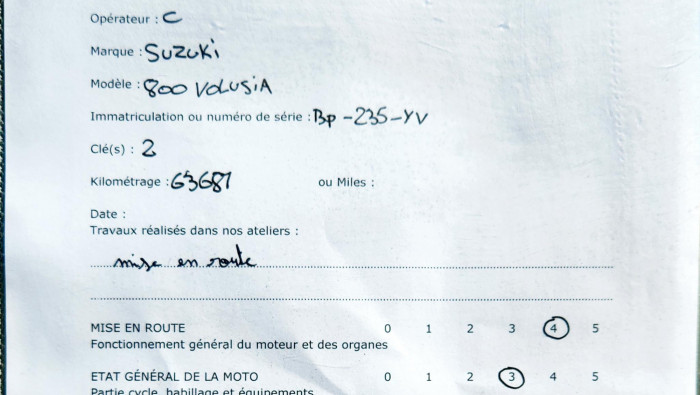 Opérateur : C
Marque : SUZUKi
Modèle : 800 VOLUSiA
Immatriculation ou numéro de série : Bp-235-YV
Clé(s) : 2
Kilométrage : 63681 ou Miles :
Date :
Travaux réalisés dans nos ateliers :
mise en route
MISE EN ROUTE 0 1 2 3 4 5
Fonctionnement général du moteur et des organes
ETAT GÉNÉRAL DE LA MOTO 0 1 2 3 4 5
Partie cycle, habillage et équipements